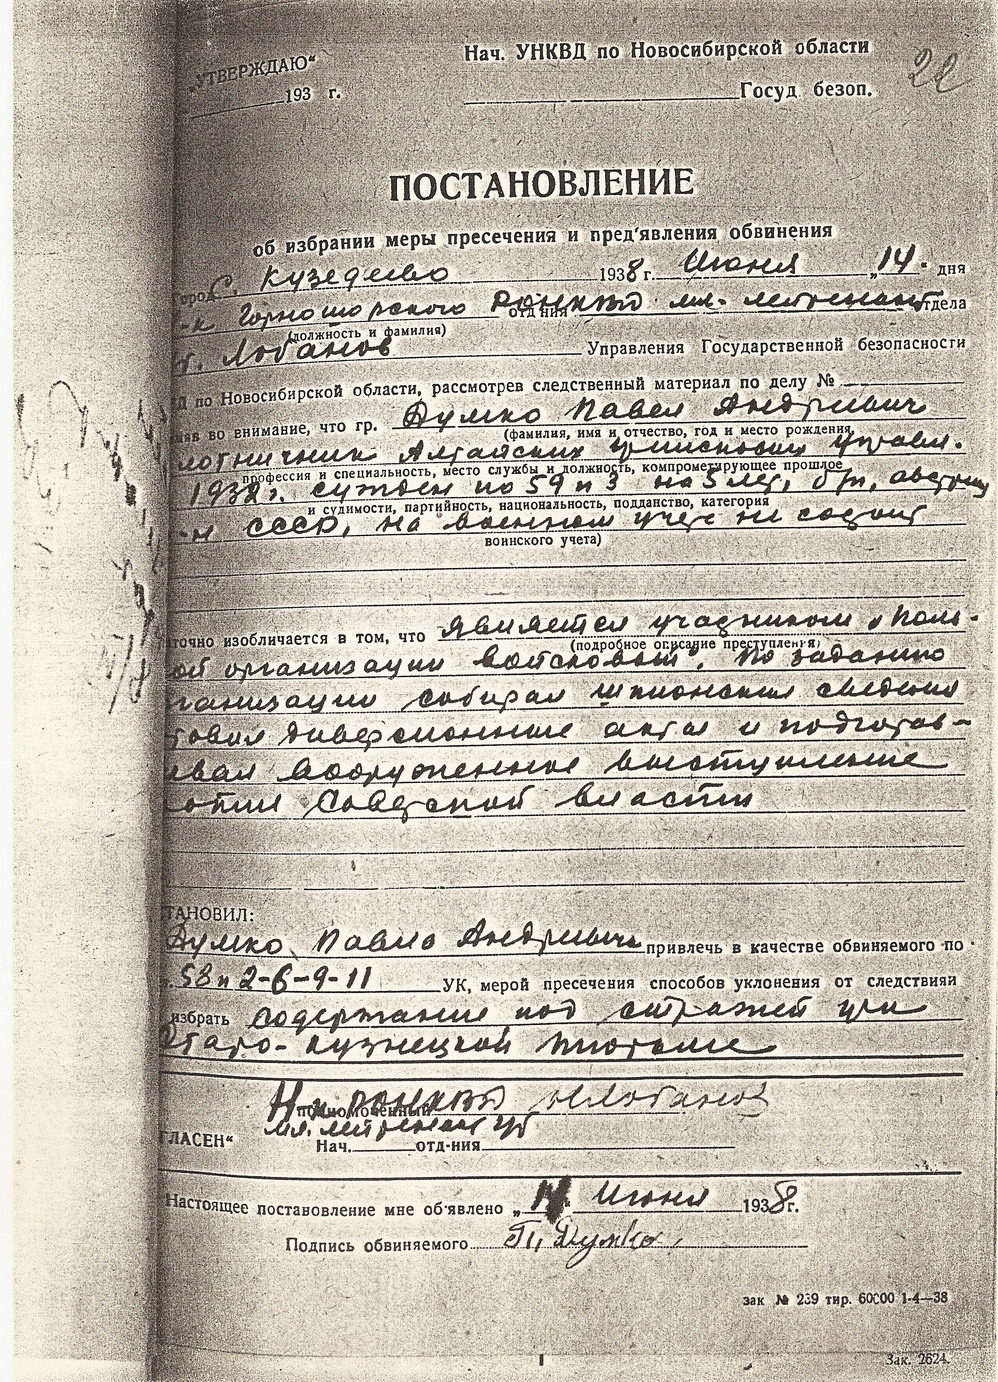 „УТВЕРЖДАЮ“
Нач. УНКВД по Новосибирской области
22
193 г.
Госуд безоп.
ПОСТАНОВЛЕНИЕ
об избрании меры пресечения и пред'явления обвинения
Город С. Кузедеево 1938 г. Июня „14“ дня
-к Горношорского РОНКВД мл. лейтенант
отд-ния отдела
(должность и фамилия)
Лобанов Управления Государственной безопасности
Д по Новосибирской области, рассмотрев следственный материал по делу №
няв во внимание, что гр. Думко Павел Андриевич
(фамилия, имя и отчество, год и место рождения,
лотничник Алтайских приисковых управл.
профессия и специальность, место службы и должность, компрометирующее прошлое
1932 г. сужден по 59 п 3 на 5 лет, б/п, австриец
и судимости, партийность, национальность, подданство, категория
-н СССР, на военном учете не состоит
воинского учета)
точно изобличается в том, что является участником „Поль-
(подробное описание преступления)
ой организации войсковый“. По заданию
ганизации собирал шпионския сведения
товил диверсионные акты и подготав-
ивал вооруженное выступление
отив Советской власти
ТАНОВИЛ:
Думко Павла Андриевича привлечь в качестве обвиняемого по
. 58 п 2-6-9-11 УК, мерой пресечения способов уклонения от следствия
избрать содержание под стражей при
Старо-Кузнецкой тюрьме
Н-к РОНКВД Лобанов
полномоченный
мл. лейтенант гб
ГЛАСЕН“
Нач. отд-ния
Настоящее постановление мне об'явлено „14“ Июня 1938 г.
Подпись обвиняемого П. Думко.
зак № 239 тир. 60000 1-4—38
Зак. 2624.